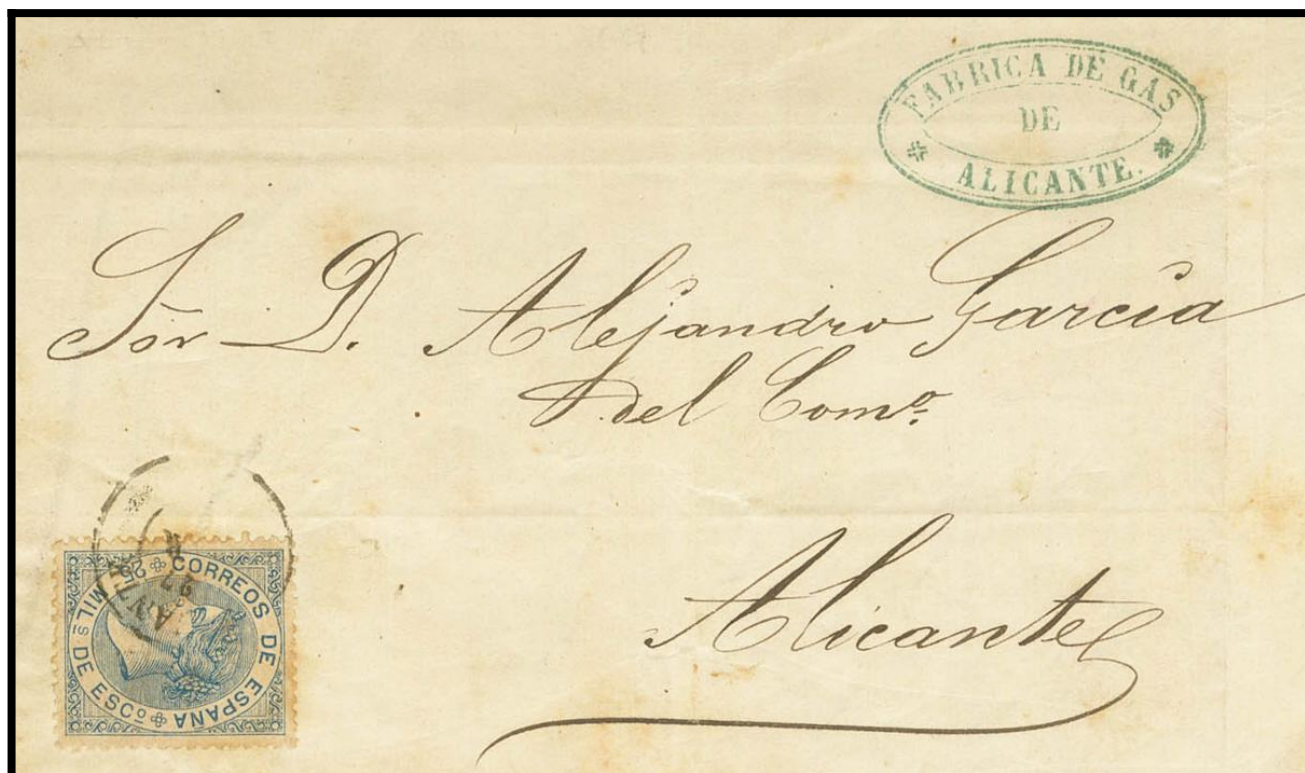 FABRICA DE GAS
DE
ALICANTE.
Sor D. Alejandro Garcia
del Como.
Alicante
CORREOS DE ESPAÑA
25 MILS DE ESCO
27